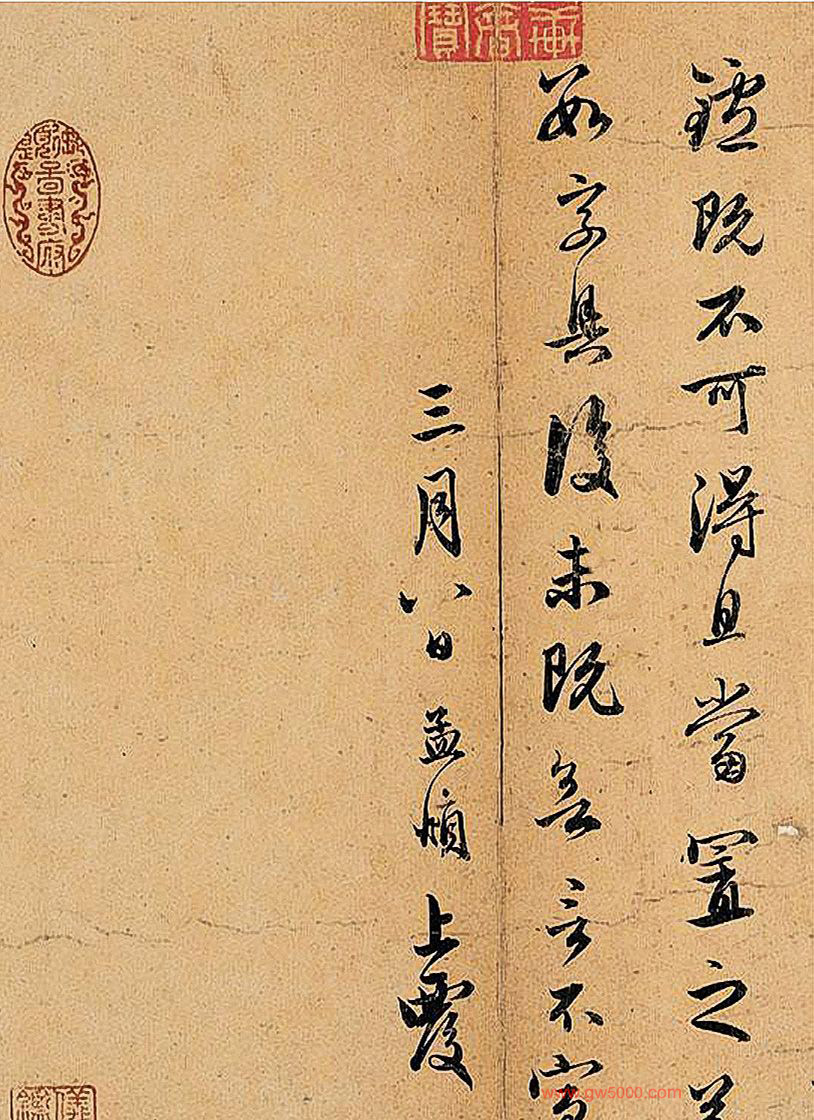 既不可得且當置之草
數字具復未既言不宣
三月八日孟頫上覆
www.gw5000.com